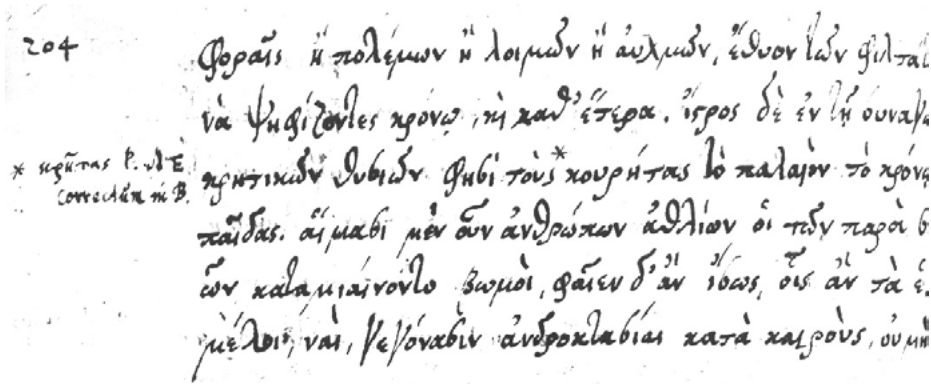 204
φοραῖς ἢ πολέμων ἢ λοιμῶν ἢ αὐχμῶν, ἔθυον τῶν φιλτά
να ψηφίζοντες κρόνῳ, καὶ καθ' ἕτερα. ἴστρος δὲ ἐν τῇ συναγω
* κρῆτας
correctum in B.
κρητικῶν θυσιῶν φησὶ τοὺς* κουρήτας τὸ παλαιὸν τῷ κρόνῳ
παῖδας. αἵμασι μὲν οὖν ἀνθρώπων ἀθλίων οἱ τῶν παρὰ
κατεμιαίνοντο βωμοὶ, φαῖεν δ' ἂν ἴσως, οἷς ἂν τὰ
μέλοι, ναὶ, γεγόνασιν ἀνδροκτασίαι κατὰ καιροὺς, οὐ μὴν